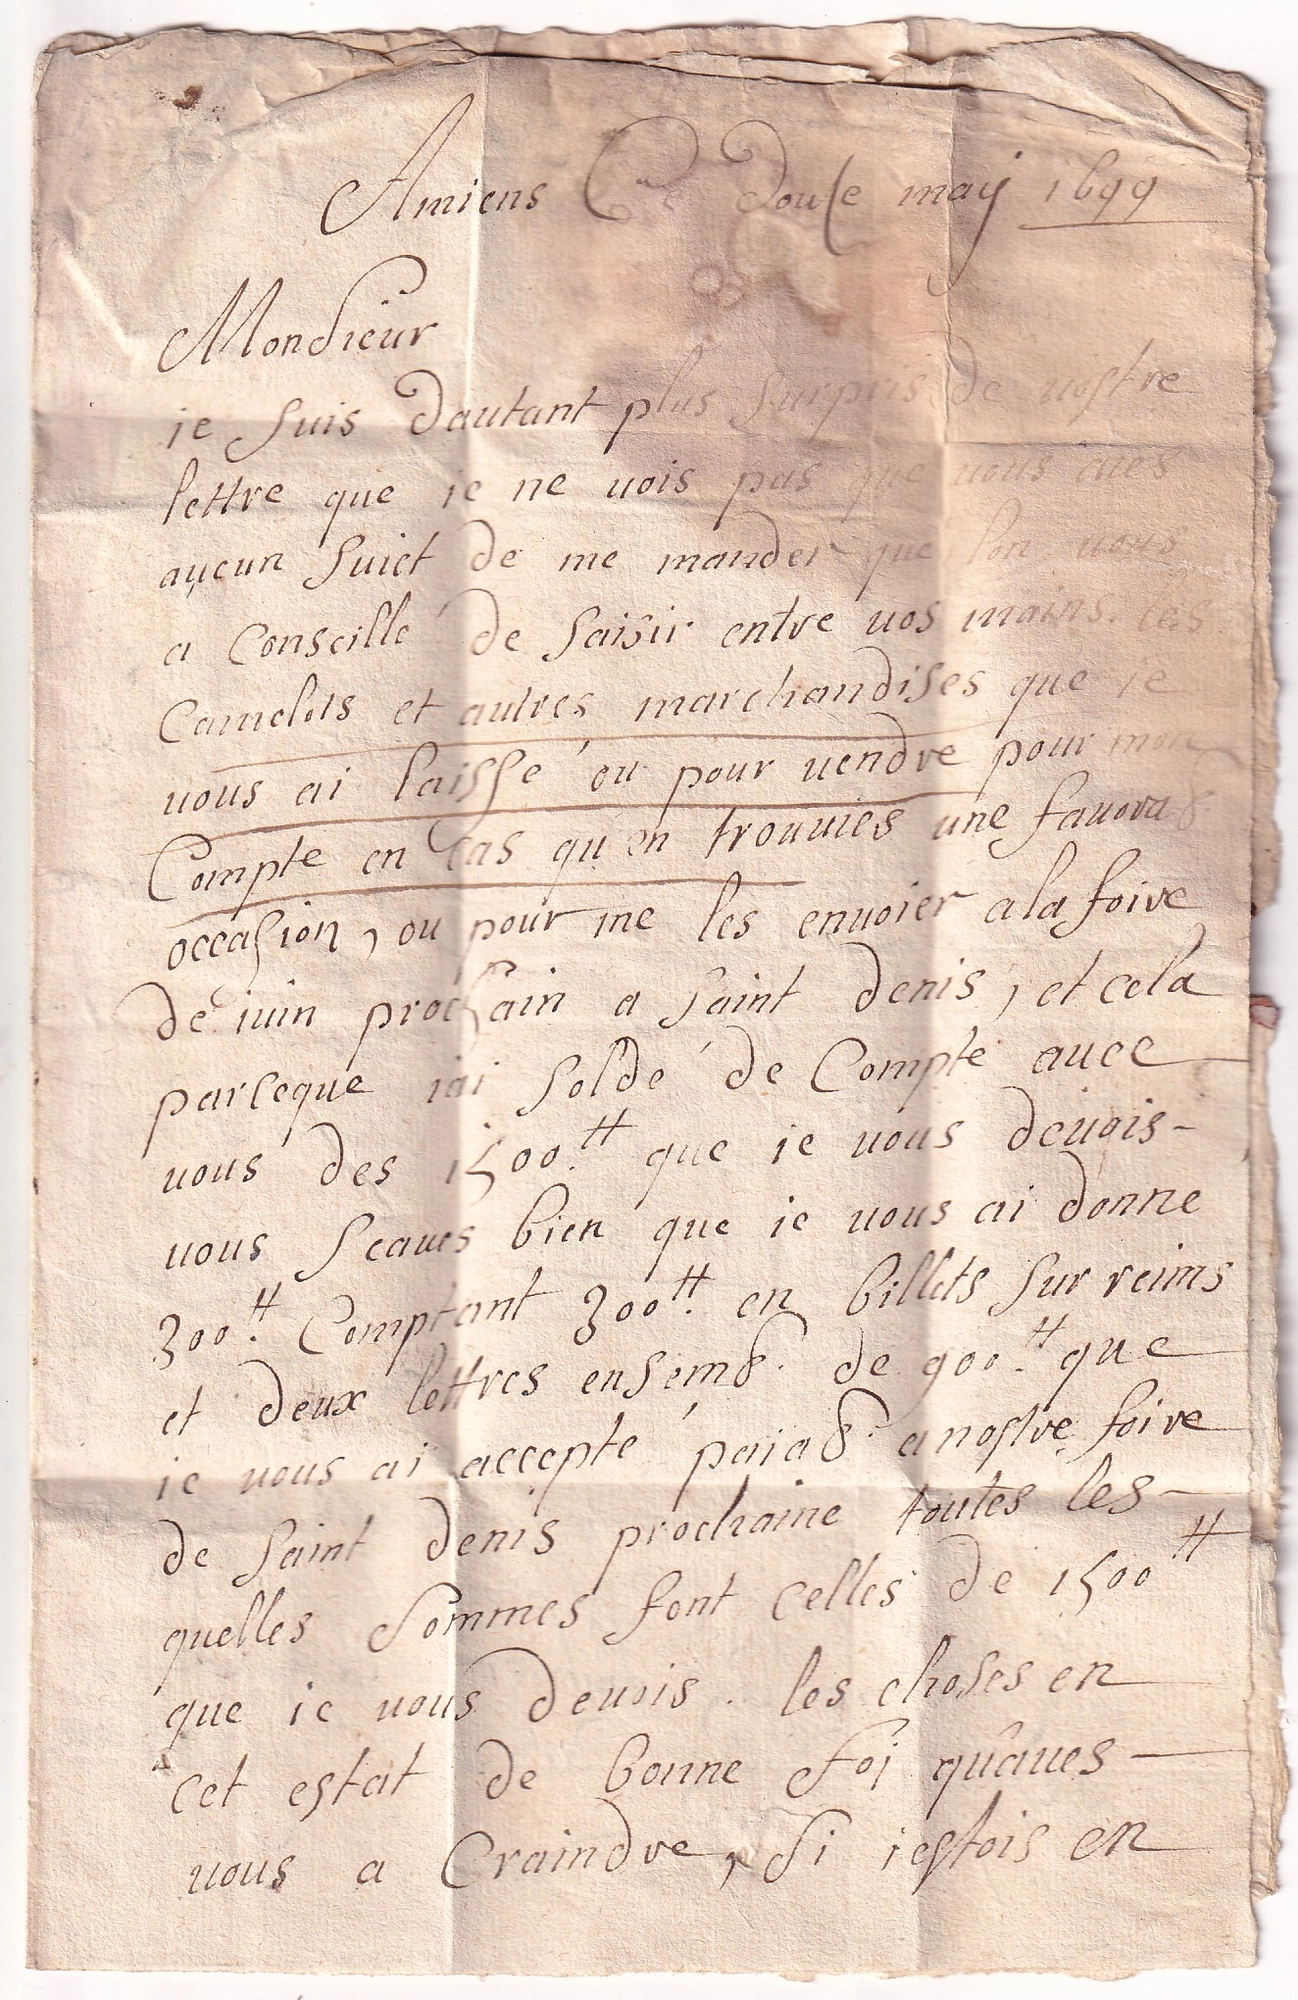 Amiens Ce douse may 1699
Monsieur
ie suis dautant plus surpris de vostre
lettre que ie ne uois pas que uous
aucun suiet de me mander que lon uous
a Conseillé de saisir entre uos mains les
Camelots et autres marchandises que ie
uous ai laissé ou pour uendre pour mon
Compte en cas qu'en trouuies une fauorab
occasion, ou pour me les enuoier a la foire
de iuin prochain a saint denis, et cela
parceque iai soldé de Compte auec
uous des 1500.tt que ie uous deuois-
uous scaues bien que ie uous ai donne
300.tt Comptant 300.tt en billets sur reims
et deux lettres ensemb. de 900.tt que
ie uous ai accepté paiab. a nostre foire
de saint denis prochaine toutes les-
quelles sommes font celles de 1500 tt
que ie uous deuois. les choses en
cet estat de bonne foi qu'aues
uous a Craindre, si iestois en